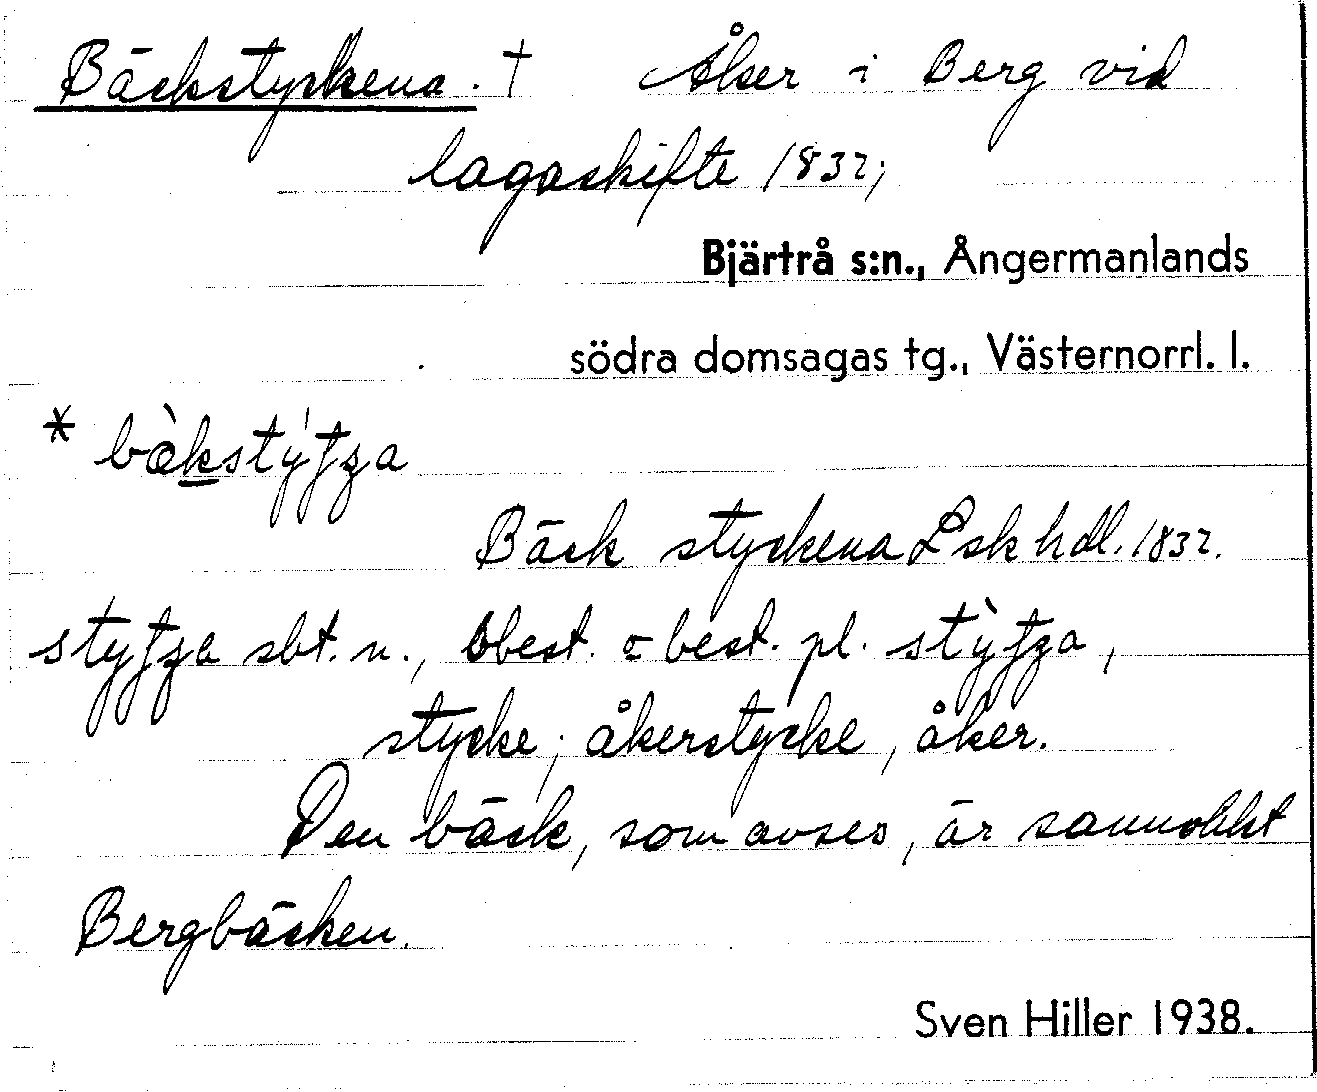 Bäckstyckena. † Åker i Berg vid
lagaskifte 1832;
Bjärtrå s:n., Ångermanlands
södra domsagas tg., Västernorrl. l.
Bäck styckena Lsk hdl. 1832.
sbt. n., obest. o best. pl.
stycke; åkerstycke, åker.
Den bäck, som avses, är sannolikt
Bergbäcken.
Sven Hiller 1938.